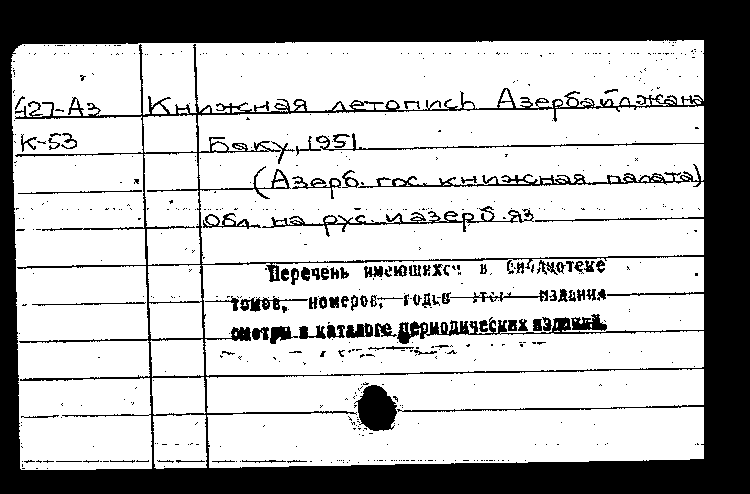 427-Аз Книжная летопись Азербайджана
К-53 Баку, 1951
(Азерб. гос. книжная палата)
Обл. на рус. и азерб. яз
Перечень имеющихся в библиотеке
томов, номеров, годов этого издания
смотри в каталоге периодических изданий.